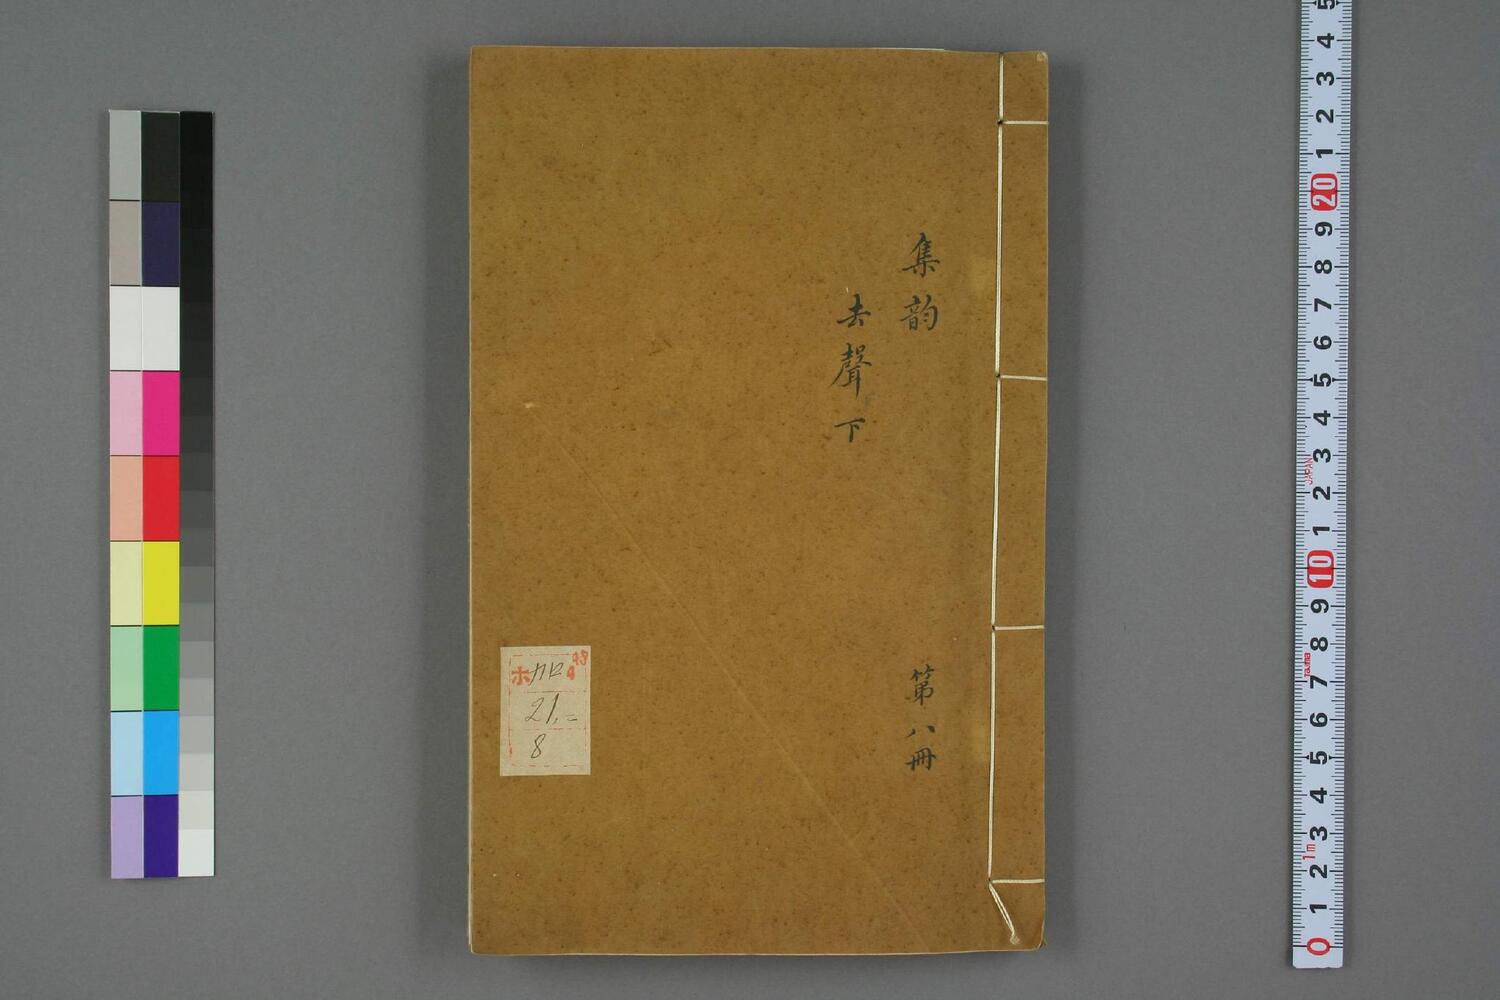 集韵
去聲下
第八冊
ホ
4
21,-
8
5
4
3
2
1
20
9
8
7
6
5
4
3
JAPAN
2
1
10
9
8
Tajima
7
6
5
4
3
1m
2
1
0